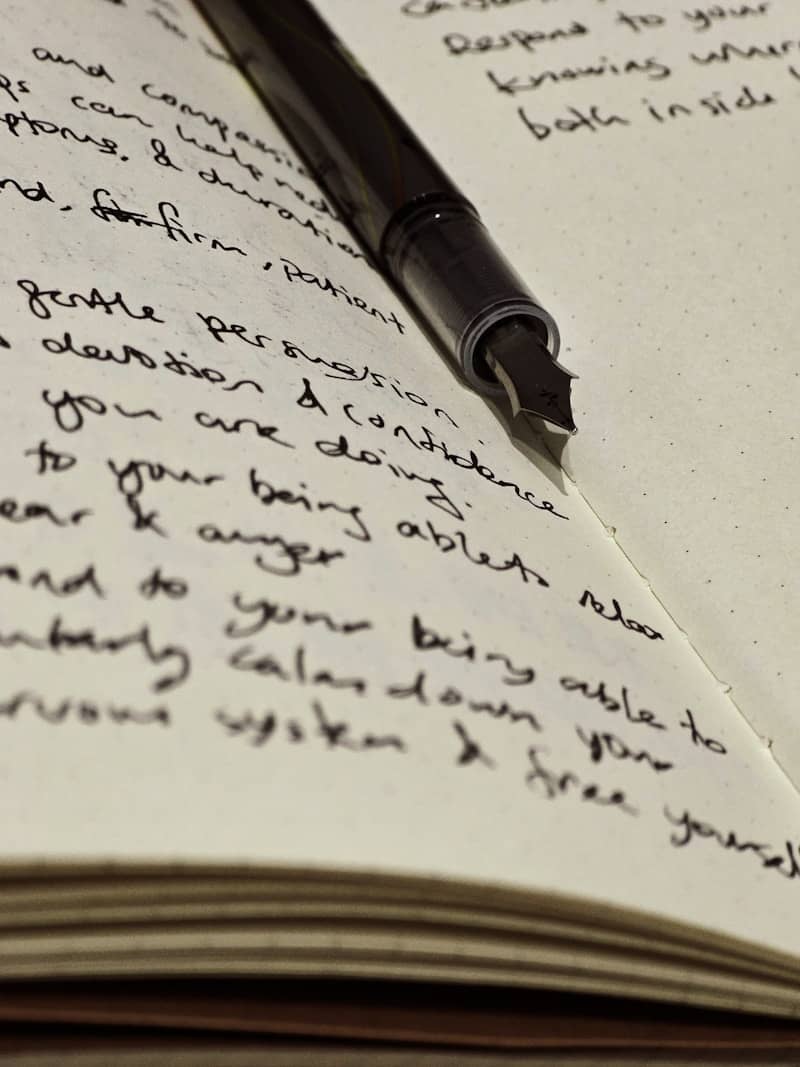 and compassi
ps can help redu
ptoms. & duration
nd, firm, patient
gentle persuasion.
devotion & confidence
you are doing.
to your being able to relax
ear & anger
and to your being able to
calm down your
ervous system & free yoursel
Respond to your
knowing wher
both inside